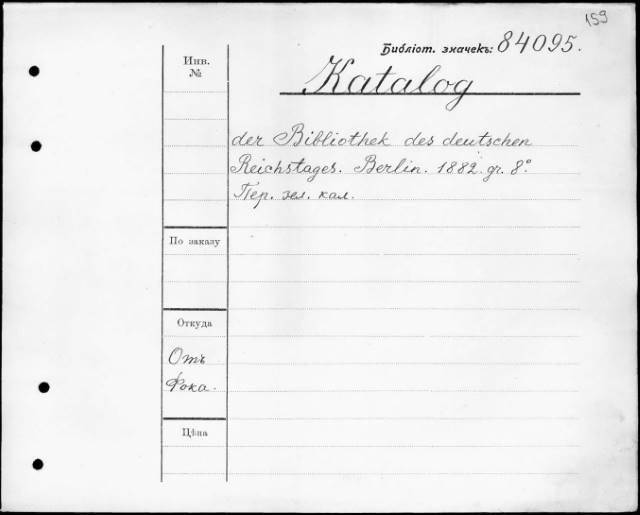 159
Библіот. значекъ: 84095.
Инв.
№
Katalog
der Bibliothek des deutschen
Reichstages. Berlin. 1882. gr. 8°
Пер. зел. кал.
По заказу
Откуда
Отъ
Фока.
Цѣна